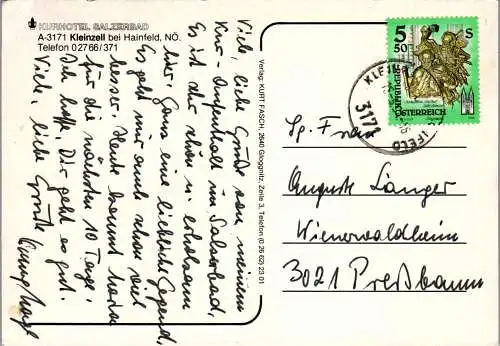 KURHOTEL SALZERBAD
A-3171 Kleinzell bei Hainfeld, NÖ.
Telefon 0 27 66 / 371
Viele, liebe Grüße von meinem
Kur-Aufenthalt im Salzerbad.
Es ist hier schön u. erholsam
hier. Ganz eine liebliche Gegend,
Es geht mir auch schon viel
besser. Heute kommt
für die nächsten 10 Tage.
Ich hoffe, Dir geht es gut.
Viele, liebe Grüße
Verlag: KURT FASCH, 2640 Gloggnitz, Zeile 3, Telefon (0 26 62) 23 01
5 50 S
REPUBLIK
ÖSTERREICH
3171
Sg. Frau
Auguste Langer
Wienerwaldheim
3021 Preßbaum